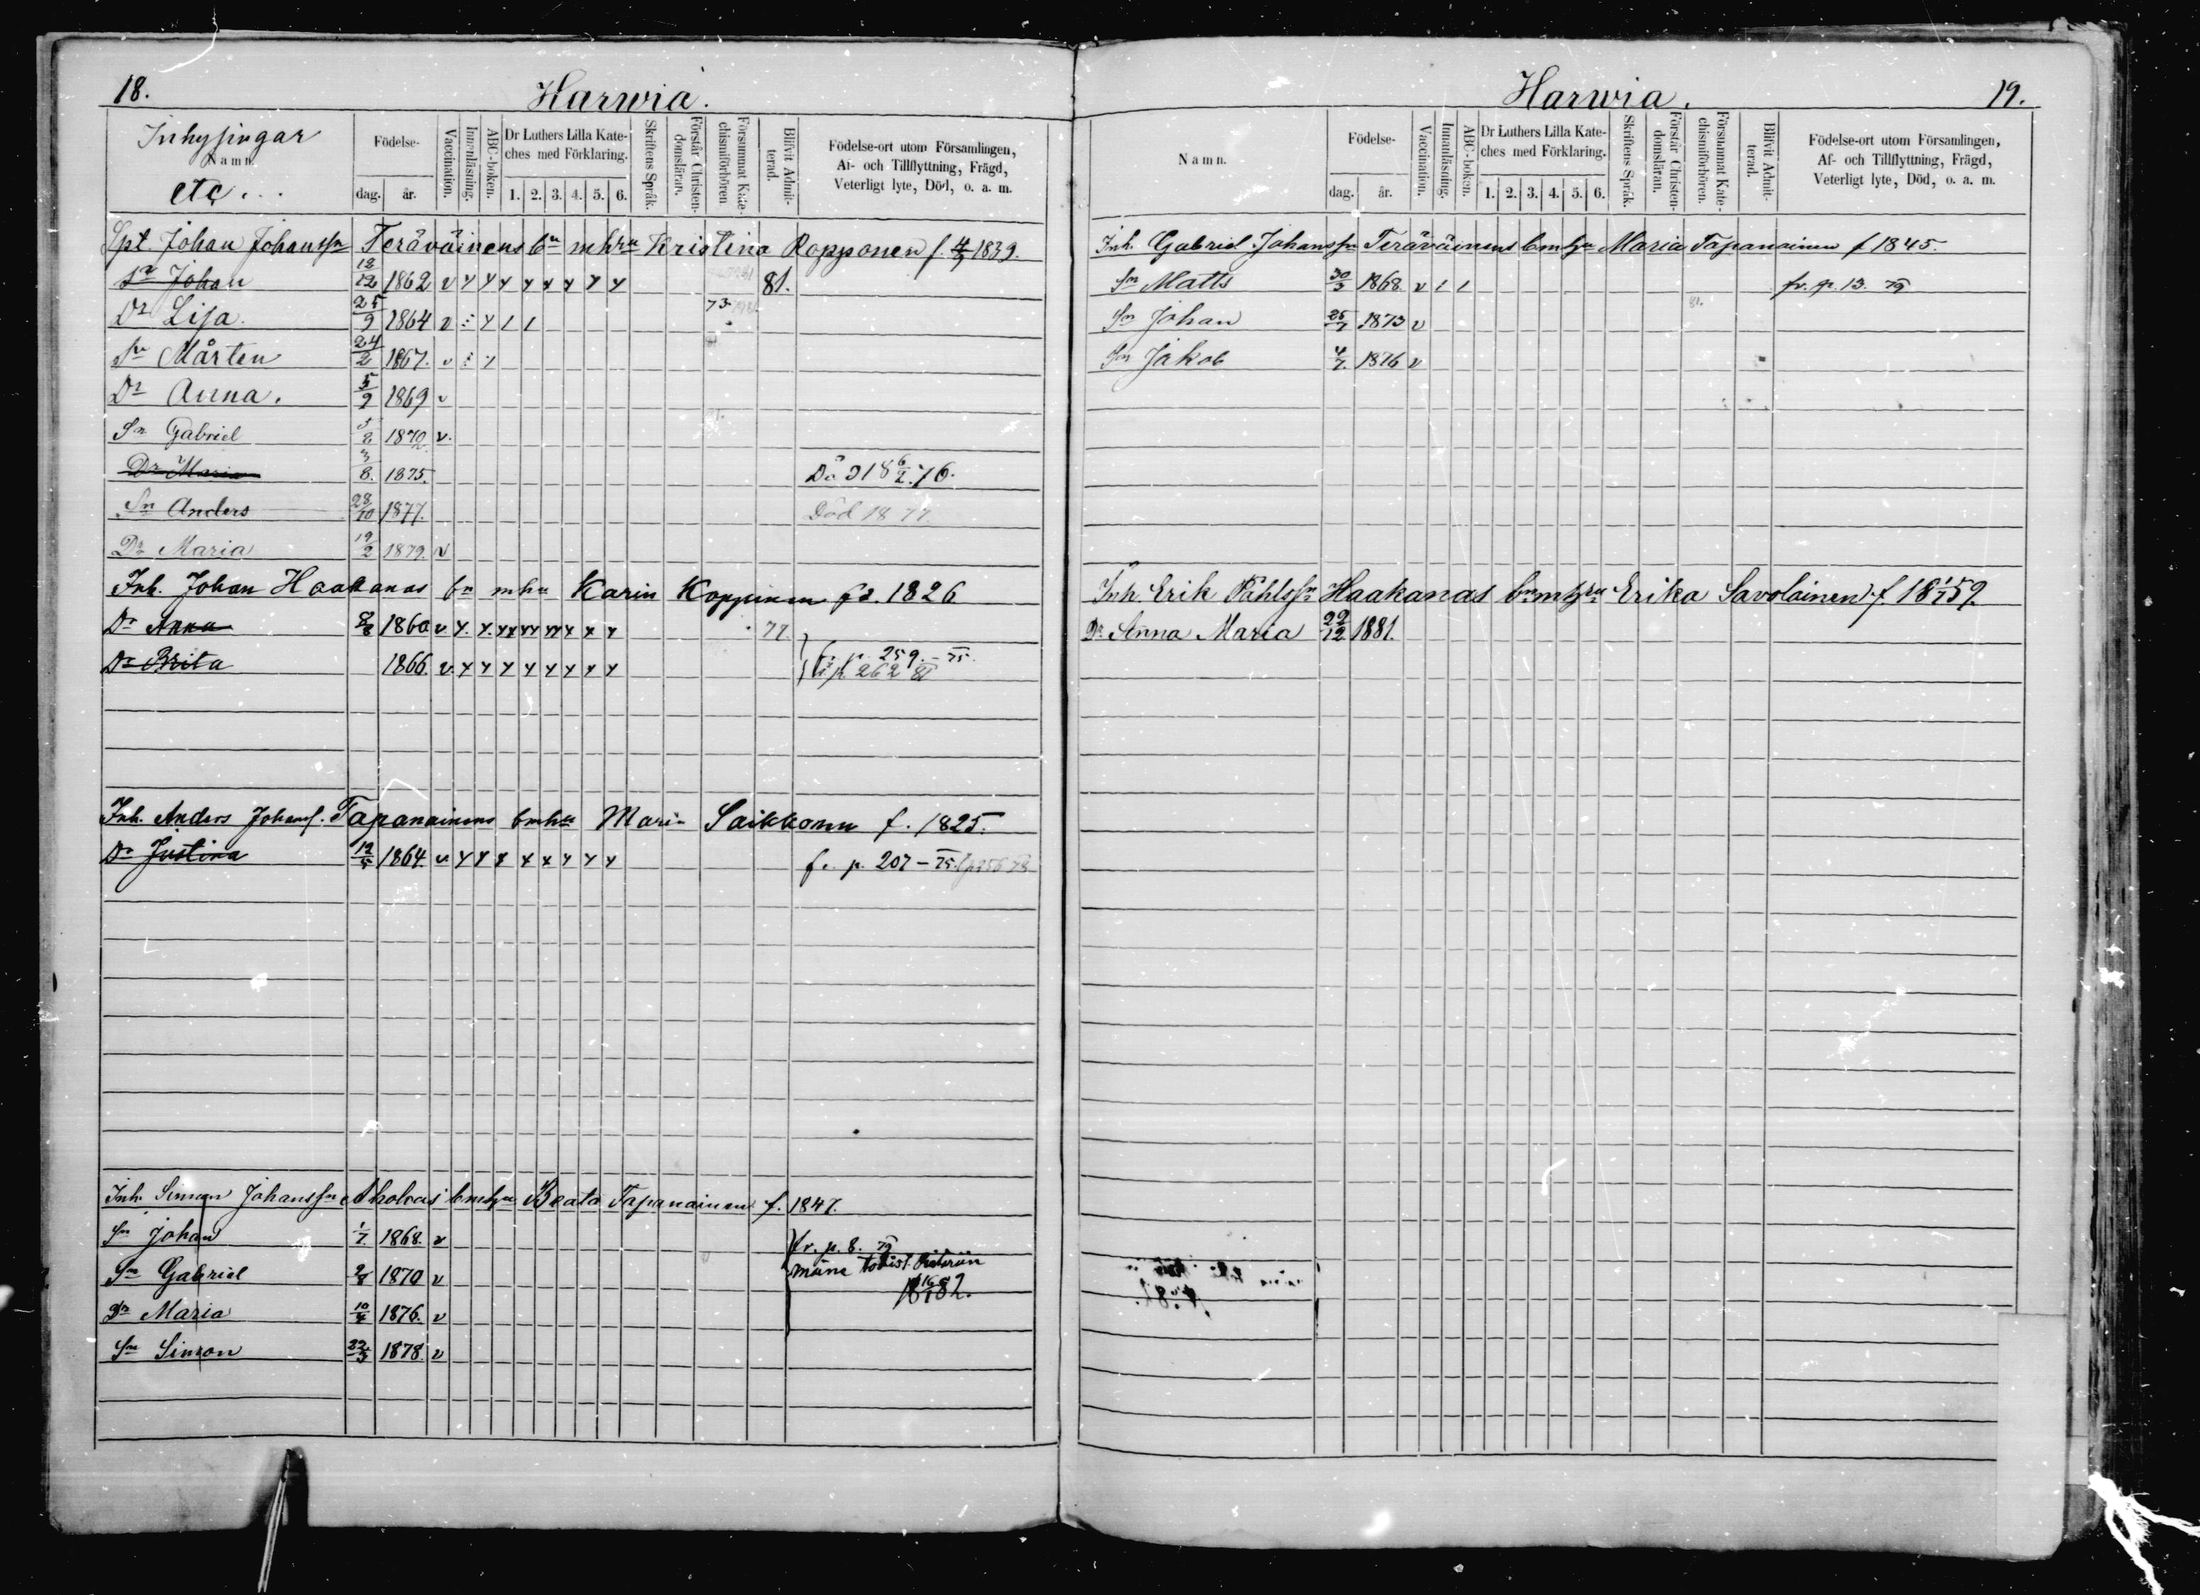 18.
Harwia.
Inhysingar
Namn.
etc...
Födelse-
dag. år.
Vaccination.
Innanläsning.
ABC-boken.
Dr Luthers Lilla Kate-
ches med Förklaring.
1. 2. 3. 4. 5. 6.
Skriftens Språk.
Förstår Christen-
domsläran.
Försummat Kate-
chismiförhören
Blifvit Admit-
terad.
Födelse-ort utom Församlingen,
Af- och Tillflyttning, Frägd,
Veterligt lyte, Död, o. a. m.
Spt. Johan Johanssn Teräväinens bn mhru Kristina Ropponen f. 4/7 1839.
Sn Johan 12/12 1862 v y y y y y y y y 81.
Dr Lisa 25/9 1864 v : y 1 1 73
Sn Mårten 24/2 1867. v : y
Dr Anna. 5/9 1869 v
Sn Gabriel 5/8 1872 v.
Dr Maria 3/8. 1875. Dö d 18 6/2. 76.
Sn Anders 28/10 1877. Död 18 77.
Dr Maria 19/2 1879. v
Inh. Johan Haakanas bn mhu Karin Koppinen fd. 1826
Dr Anna 2/8 1860 v y. y. yx xy xy x x y 77
Dr Brita 1866. v. y y y y y y y y fr. p. 259. - 75.
p. 262 81
Inh. Anders Johanss. Tapanainens bmhu Maria Saikkonen f. 1825.
Dr Justina 12/5 1864. v y y y x x y y y fr. p. 207 - 75.
Inh. Simon Johanssn Aholas bmhu Beata Tapanainen f. 1847.
Sn Johan 1/7. 1868. v fr. p. 8. 79
Sn Gabriel 2/8 1870 v
Dr Maria 10/4 1876. v
Sn Simon 22/3 1878. v
Harwia.
19.
Namn.
Födelse-
dag. år.
Vaccination.
Innanläsning.
ABC-boken.
Dr Luthers Lilla Kate-
ches med Förklaring.
1. 2. 3. 4. 5. 6.
Skriftens Språk.
Förstår Christen-
domsläran.
Försummat Kate-
chismiförhören.
Blifvit Admit-
terad.
Födelse-ort utom Församlingen,
Af- och Tillflyttning, Frägd,
Veterligt lyte, Död, o. a. m.
Inh. Gabriel Johanssn Teräväinens bmhu Maria Tapanainen f 1845.
Sn Matts 30/3 1868. v 1 1 fr. p. 13. 79
Sn Johan 25/7 1873 v 81.
Sn Jakob 4/7. 1876 v
Inh. Erik Påhlssn Haakanas bnmhru Erika Savolainen f. 18 1/1 59.
Dr Anna Maria 22/12 1881.